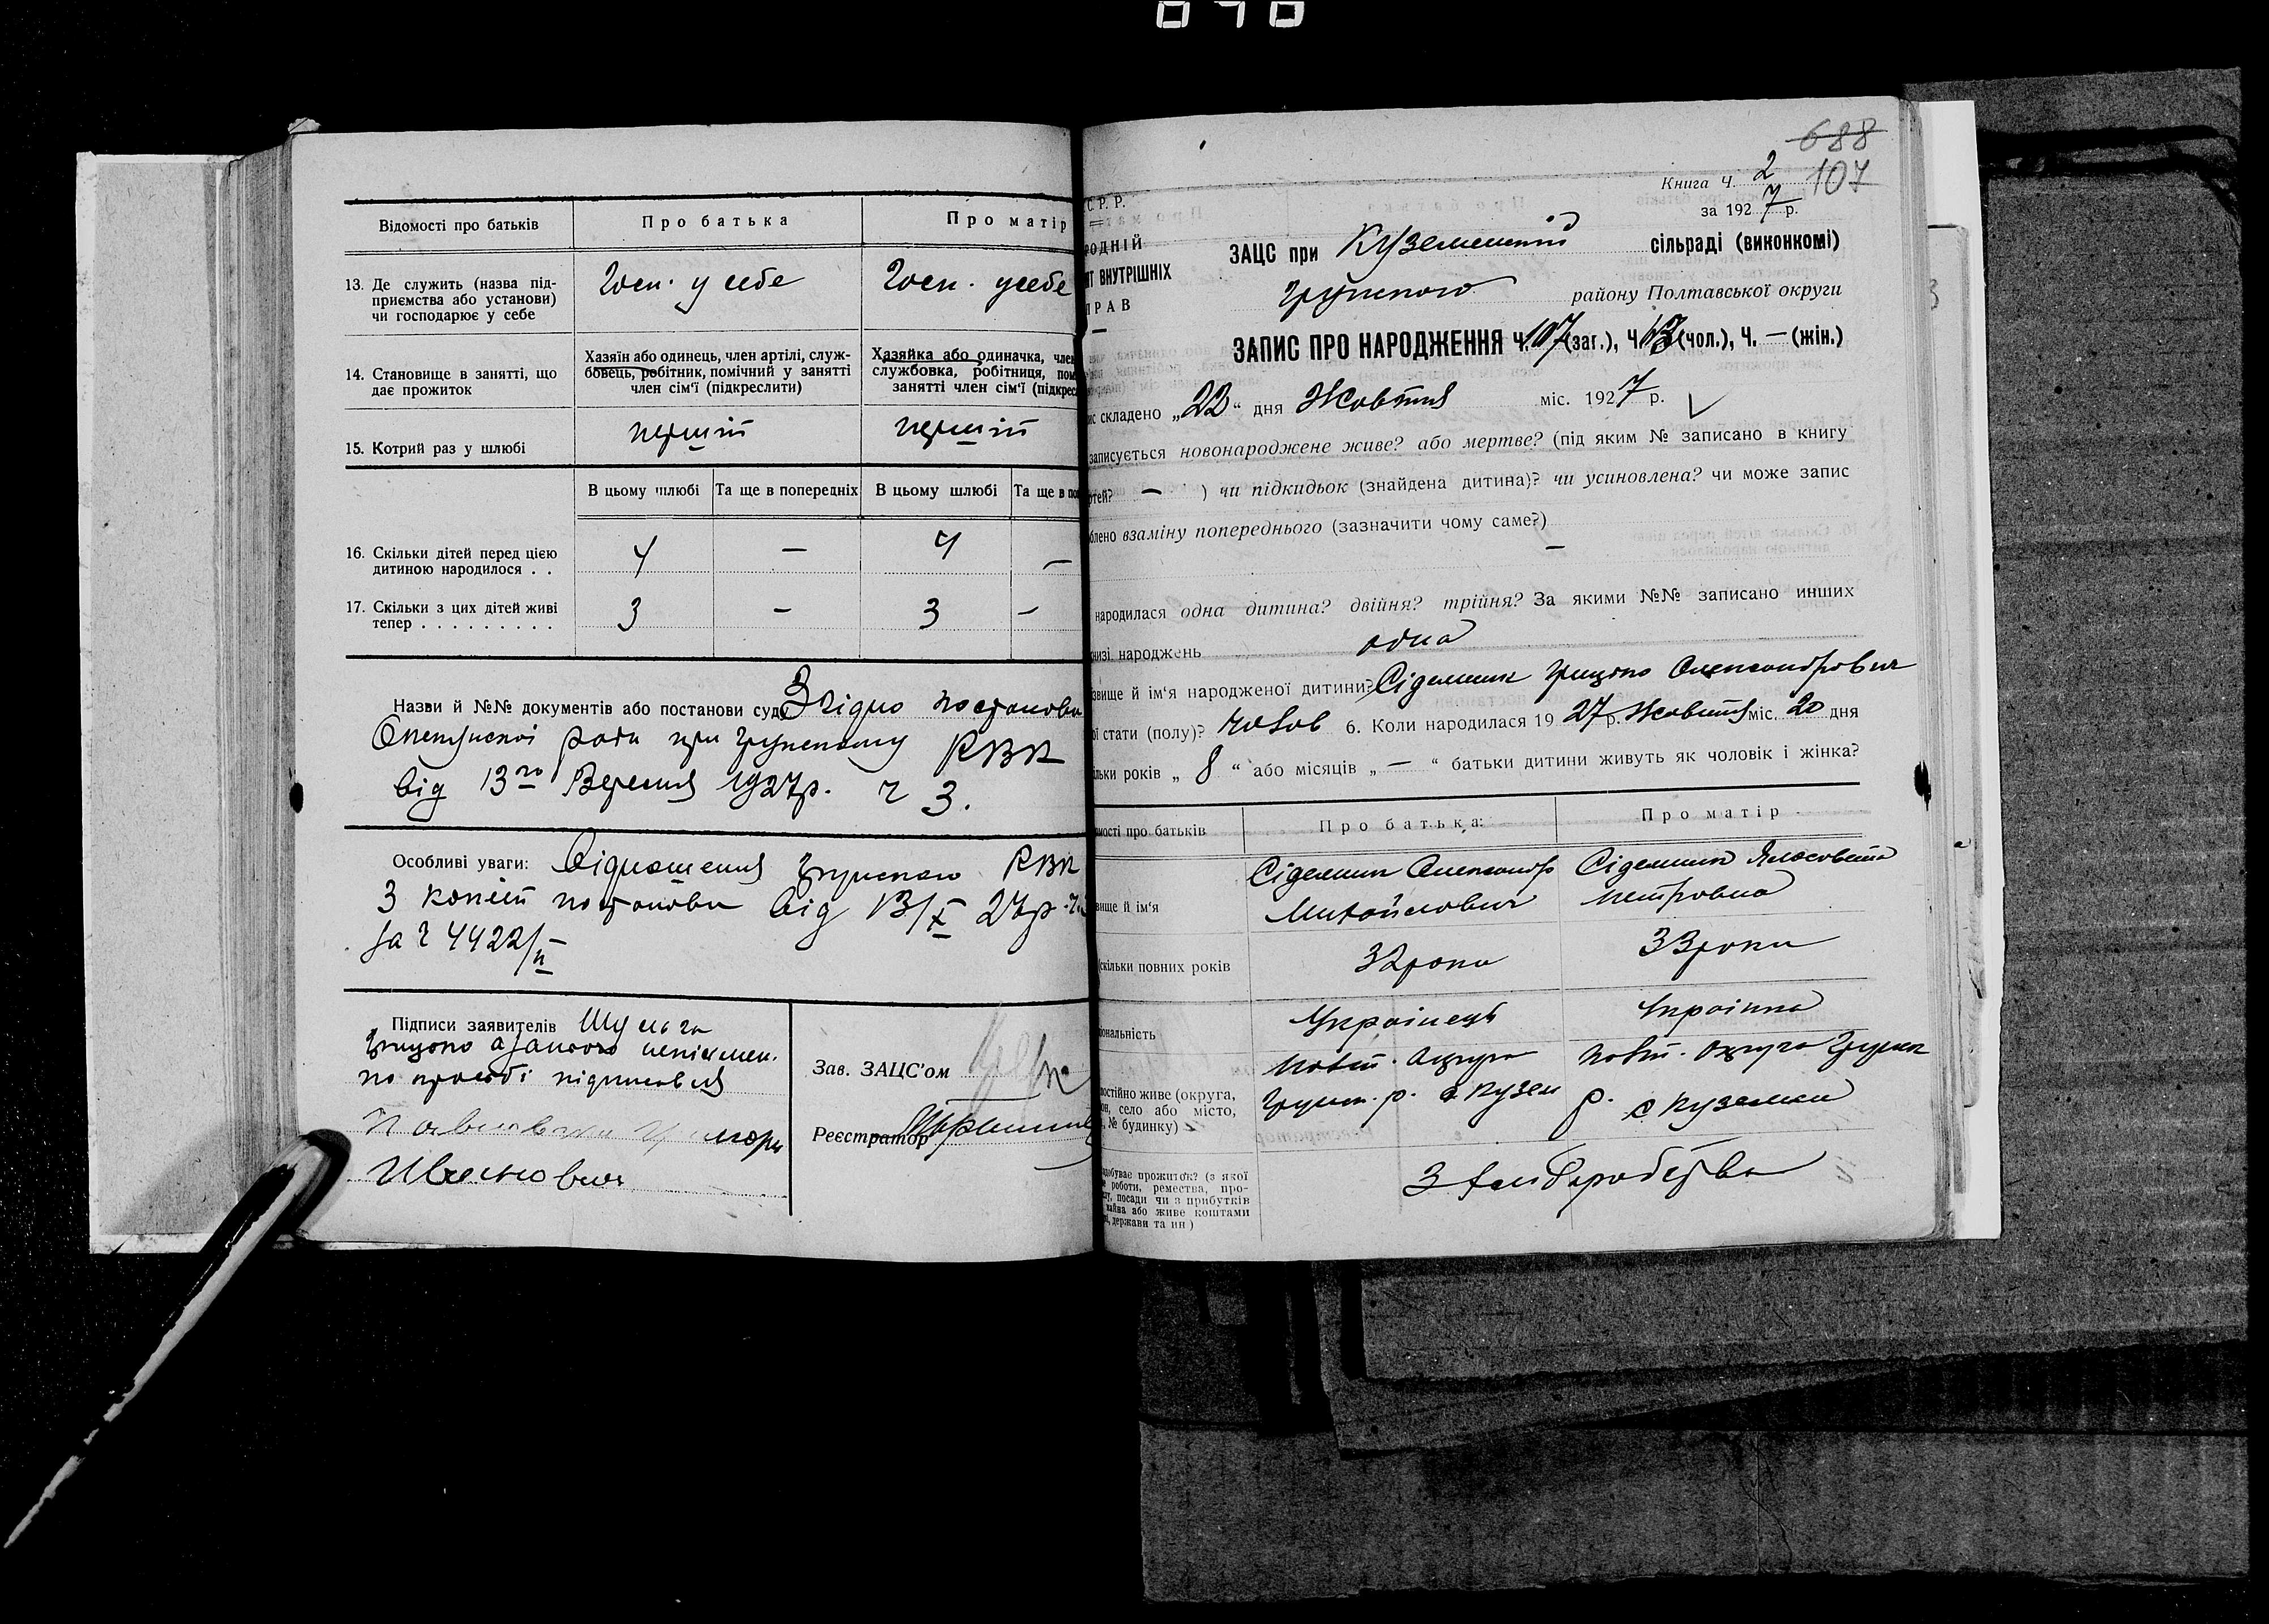 Відомості про батьків
Про батька
Про матір
13. Де служить (назва під-
приємства або установи)
чи господарює у себе
Госп. у себе
Госп. у себе
14. Становище в занятті, що
дає прожиток
Хазяїн або одинець, член артілі, служ-
бовець, робітник, помічний у занятті
член сім'ї (підкреслити)
Хазяйка або одиначка, член
службовка, робітниця, пом
занятті член сім'ї (підкрес
15. Котрий раз у шлюбі
перший
перший
В цьому шлюбі
Та ще в попередніх
В цьому шлюбі
Та ще в по
16. Скільки дітей перед цією
дитиною народилося . .
4
—
4
—
17. Скільки з цих дітей живі
тепер . . . . . . . . .
3
—
3
—
Назви й №№ документів або постанови суду Згідно постанови
Опекунскої ради при Грунському РВК
від 13го Вересня 1927р. ч 3.
Особливі уваги: Відношення Грунського РВК
З копією постанови від 13/X 27р.
за ч 4422/
Підписи заявителів Шульга
Грицько а за нього неписьмен.
по просьбі підписався
Іванович
Зав. ЗАЦС'ом
Реєстратор
688
107
Книга ч. 2
за 1927 р.
С Р. Р.
РОДНІЙ
АТ ВНУТРІШНІХ
ПРАВ
ЗАЦС при Куземенській сільраді (виконкомі)
Грунського району Полтавської округи
ЗАПИС ПРО НАРОДЖЕННЯ Ч. 107 (заг.), Ч. 63 (чол.), Ч. — (жін.)
ис складено „22“ дня Жовтня міс. 1927 р.
записується новонароджене живе? або мертве? (під яким № записано в книгу
ртей? — ) чи підкидьок (знайдена дитина)? чи усиновлена? чи може запис
блено взаміну попереднього (зазначити чому саме?)
—
народилася одна дитина? двійня? трійня? За якими №№ записано инших
низі народжень одна
звище й ім'я народженої дитини? Сідельник Грицько Олександрович
ої стати (полу)? чолов 6. Коли народилася 1927 р. Жовтня міс. 20 дня
ільки років „8“ або місяців „—“ батьки дитини живуть як чоловік і жінка?
мості про батьків
Про батька:
Про матір
вище й ім'я
Сідельник Олександр
Михайлович
Сідельник Ялисовета
Петровна
скільки повних років
32 роки
33 роки
іональність
Українець
Українка
постійно живе (округа,
он, село або місто,
, № будинку)
Полт. Округа
Грунс. р. с Кузем
Полт. Округа Грунс
р. с Куземин
здобуває прожиток? (з якої
е роботи, ремества, про-
лу, посади чи з прибутків
майна або живе коштами
і, держави та ин)
З хліборобства